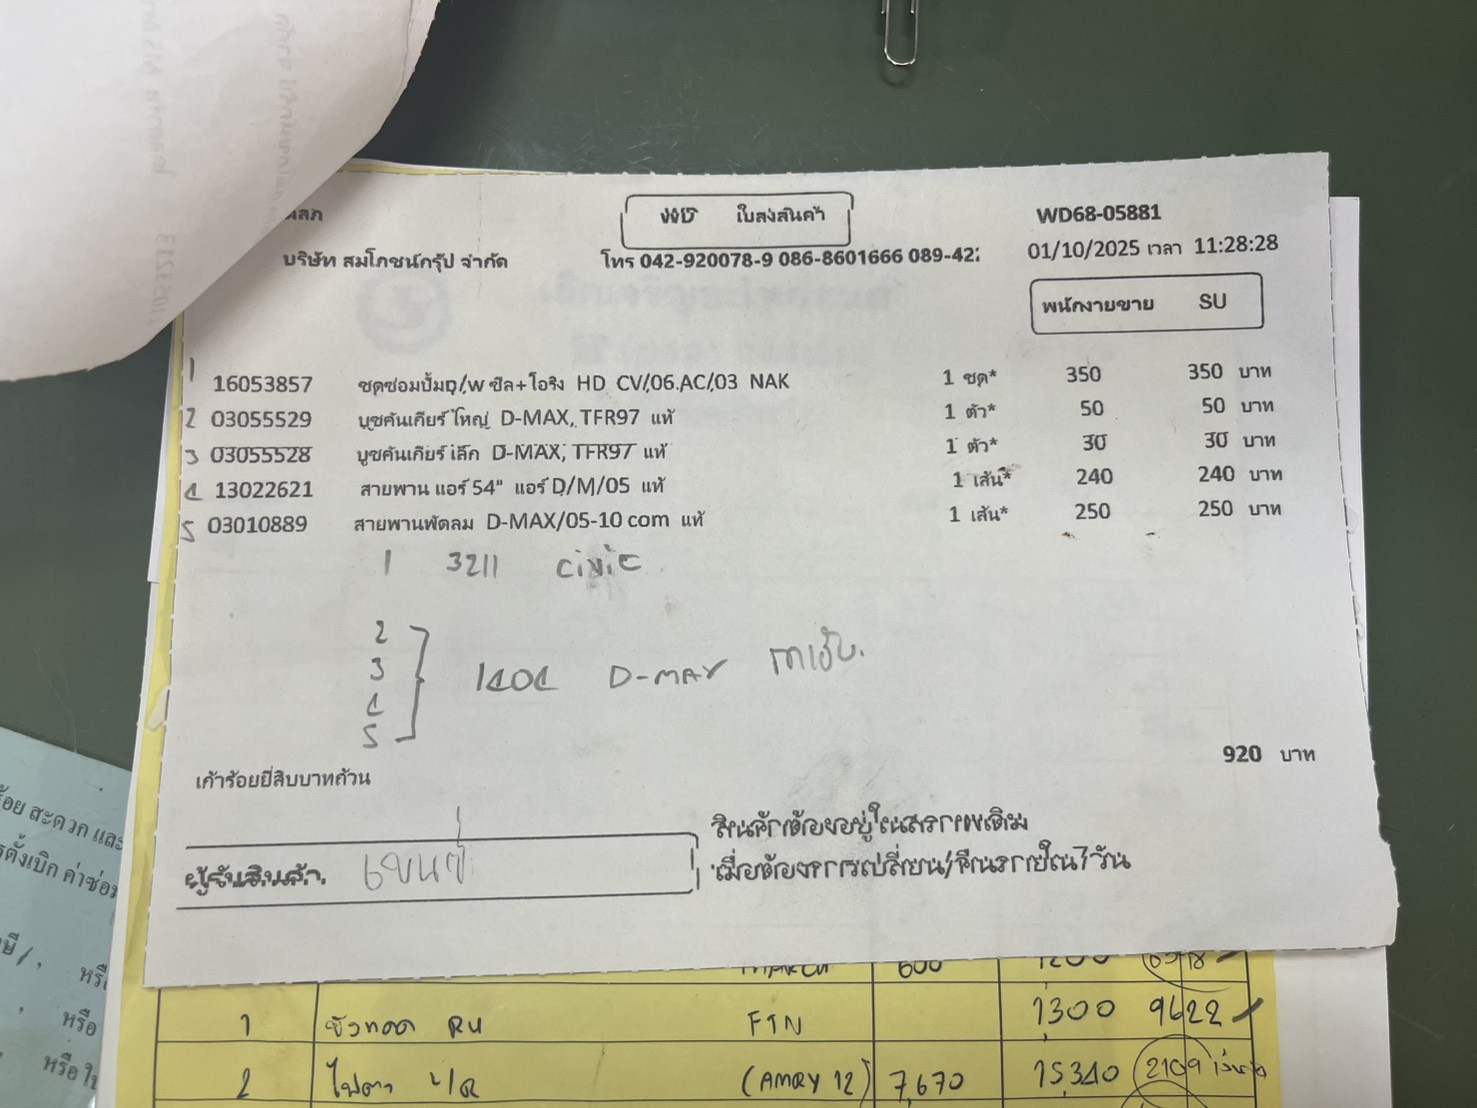 WD ใบส่งสินค้า WD68-05881
บริษัท สมโภชน์กรุ๊ป จำกัด โทร 042-920078-9 086-8601666 089-422 01/10/2025 เวลา 11:28:28
พนักงายขาย SU
1 16053857 ชุดซ่อมปั้มP/W ซีล+โอริง HD CV/06.AC/03 NAK 1 ชุด* 350 350 บาท
2 03055529 บูชคันเกียร์ ใหญ่ D-MAX, TFR97 แท้ 1 ตัว* 50 50 บาท
3 03055528 บูชคันเกียร์ เล็ก D-MAX, TFR97 แท้ 1 ตัว* 30 30 บาท
4 13022621 สายพาน แอร์ 54" แอร์ D/M/05 แท้ 1 เส้น* 240 240 บาท
5 03010889 สายพานพัดลม D-MAX/05-10 com แท้ 1 เส้น* 250 250 บาท
1 3211 civic
2
3
4
5
1404 D-MAX
920 บาท
เก้าร้อยยี่สิบบาทถ้วน
สินค้าต้องอยู่ในสภาพเดิม
ผู้รับสินค้า
เมื่อต้องการเปลี่ยน/คืนภายใน7วัน
ร้อย สะดวก และ
รตั้งเบิก ค่าซ่อม
หรือ
หรือ
หรือ ใบ
600 1200
1 FTN 1300 9622
2 ไฟตา (AMRY 12) 7,670 15,340 2109